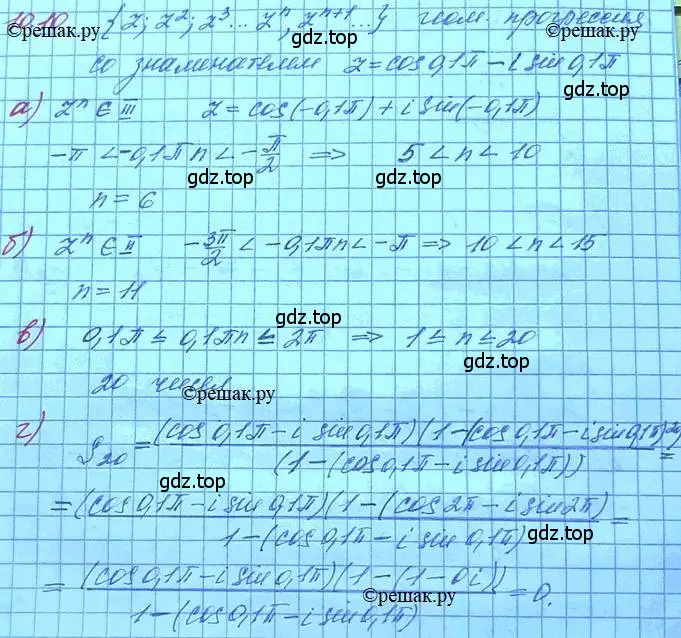 10.10 {z; z²; z³... zⁿ, zⁿ⁺¹...} геом. прогрессия
©решак.ру
gdz.top
со знаменателем z = cos 0,1π − i sin 0,1π
©решак.ру
а) zⁿ ∈ III z = cos(−0,1π) + i sin(−0,1π)
−π < −0,1πn < −π/2 ⇒ 5 < n < 10
gdz.top gdz.top
n = 6
б) zⁿ ∈ II −3π/2 < −0,1πn < −π ⇒ 10 < n < 15
gdz.top
n = 11
©решак.ру
в) 0,1π ≤ 0,1πn ≤ 2π ⇒ 1 ≤ n ≤ 20
gdz.top
20 чисел
©решак.ру
г) S₂₀ = (cos 0,1π − i sin 0,1π)(1 − (cos 0,1π − i sin 0,1π)²⁰) / (1 − (cos 0,1π − i sin 0,1π)) =
gdz.top
= (cos 0,1π − i sin 0,1π)(1 − (cos 2π − i sin 2π) / 1 − (cos 0,1π − i sin 0,1π) =
gdz.top
= (cos 0,1π − i sin 0,1π)(1 − (1 − 0i)) / 1 − (cos 0,1π − i sin 0,1π) = 0.
©решак.ру
gdz.top